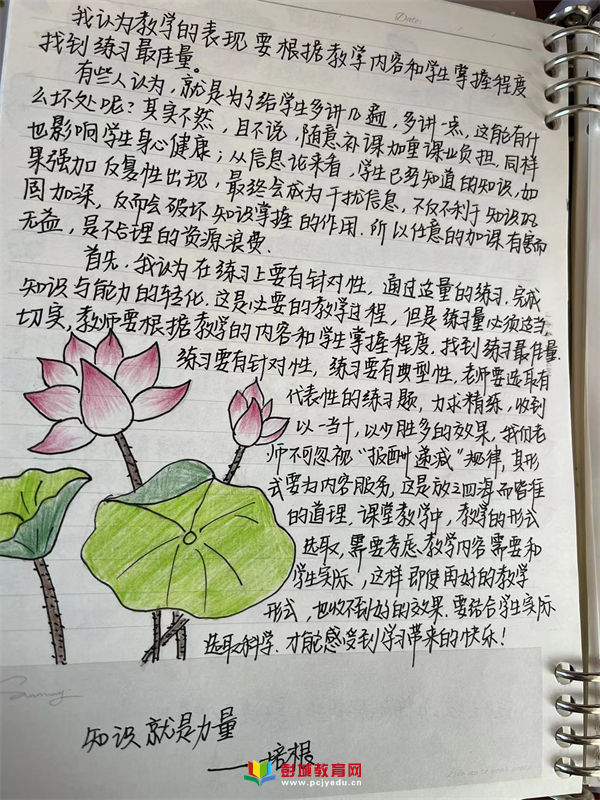 Date:
我认为教学的表现要根据教学内容和学生掌握程度
找到练习最佳量。
有些人认为，就是为了给学生多讲几遍，多讲一点，这能有什
么坏处呢？其实不然，且不说，随意补课加重课业负担，同样
也影响学生身心健康；从信息论来看，学生已经知道的知识，如
果强加反复性出现，最终会成为干扰信息，不仅不利于知识巩
固加深，反而会破坏知识掌握的作用．所以任意的加课有害而
无益，是不合理的资源浪费．
首先，我认为在练习上要有针对性，通过适量的练习，完成
知识与能力的转化．这是必要的教学过程，但是练习量必须适当
切实，教师要根据教学的内容和学生掌握程度．找到练习最佳量．
练习要有针对性，练习要有典型性，老师要选取有
代表性的练习题，力求精练，收到
以一当十，以少胜多的效果，我们老
师不可忽视“报酬递减”规律，其形
式要为内容服务，这是放之四海而皆准
的道理，课堂教学中，教学的形式
选取，需要考虑教学内容需要和
学生实际，这样即使再好的教学
形式，也收不到好的效果．要结合学生实际
选取科学．才能感受到学习带来的快乐！
知识就是力量
——培根
彭城教育网
www.pcjyedu.cn